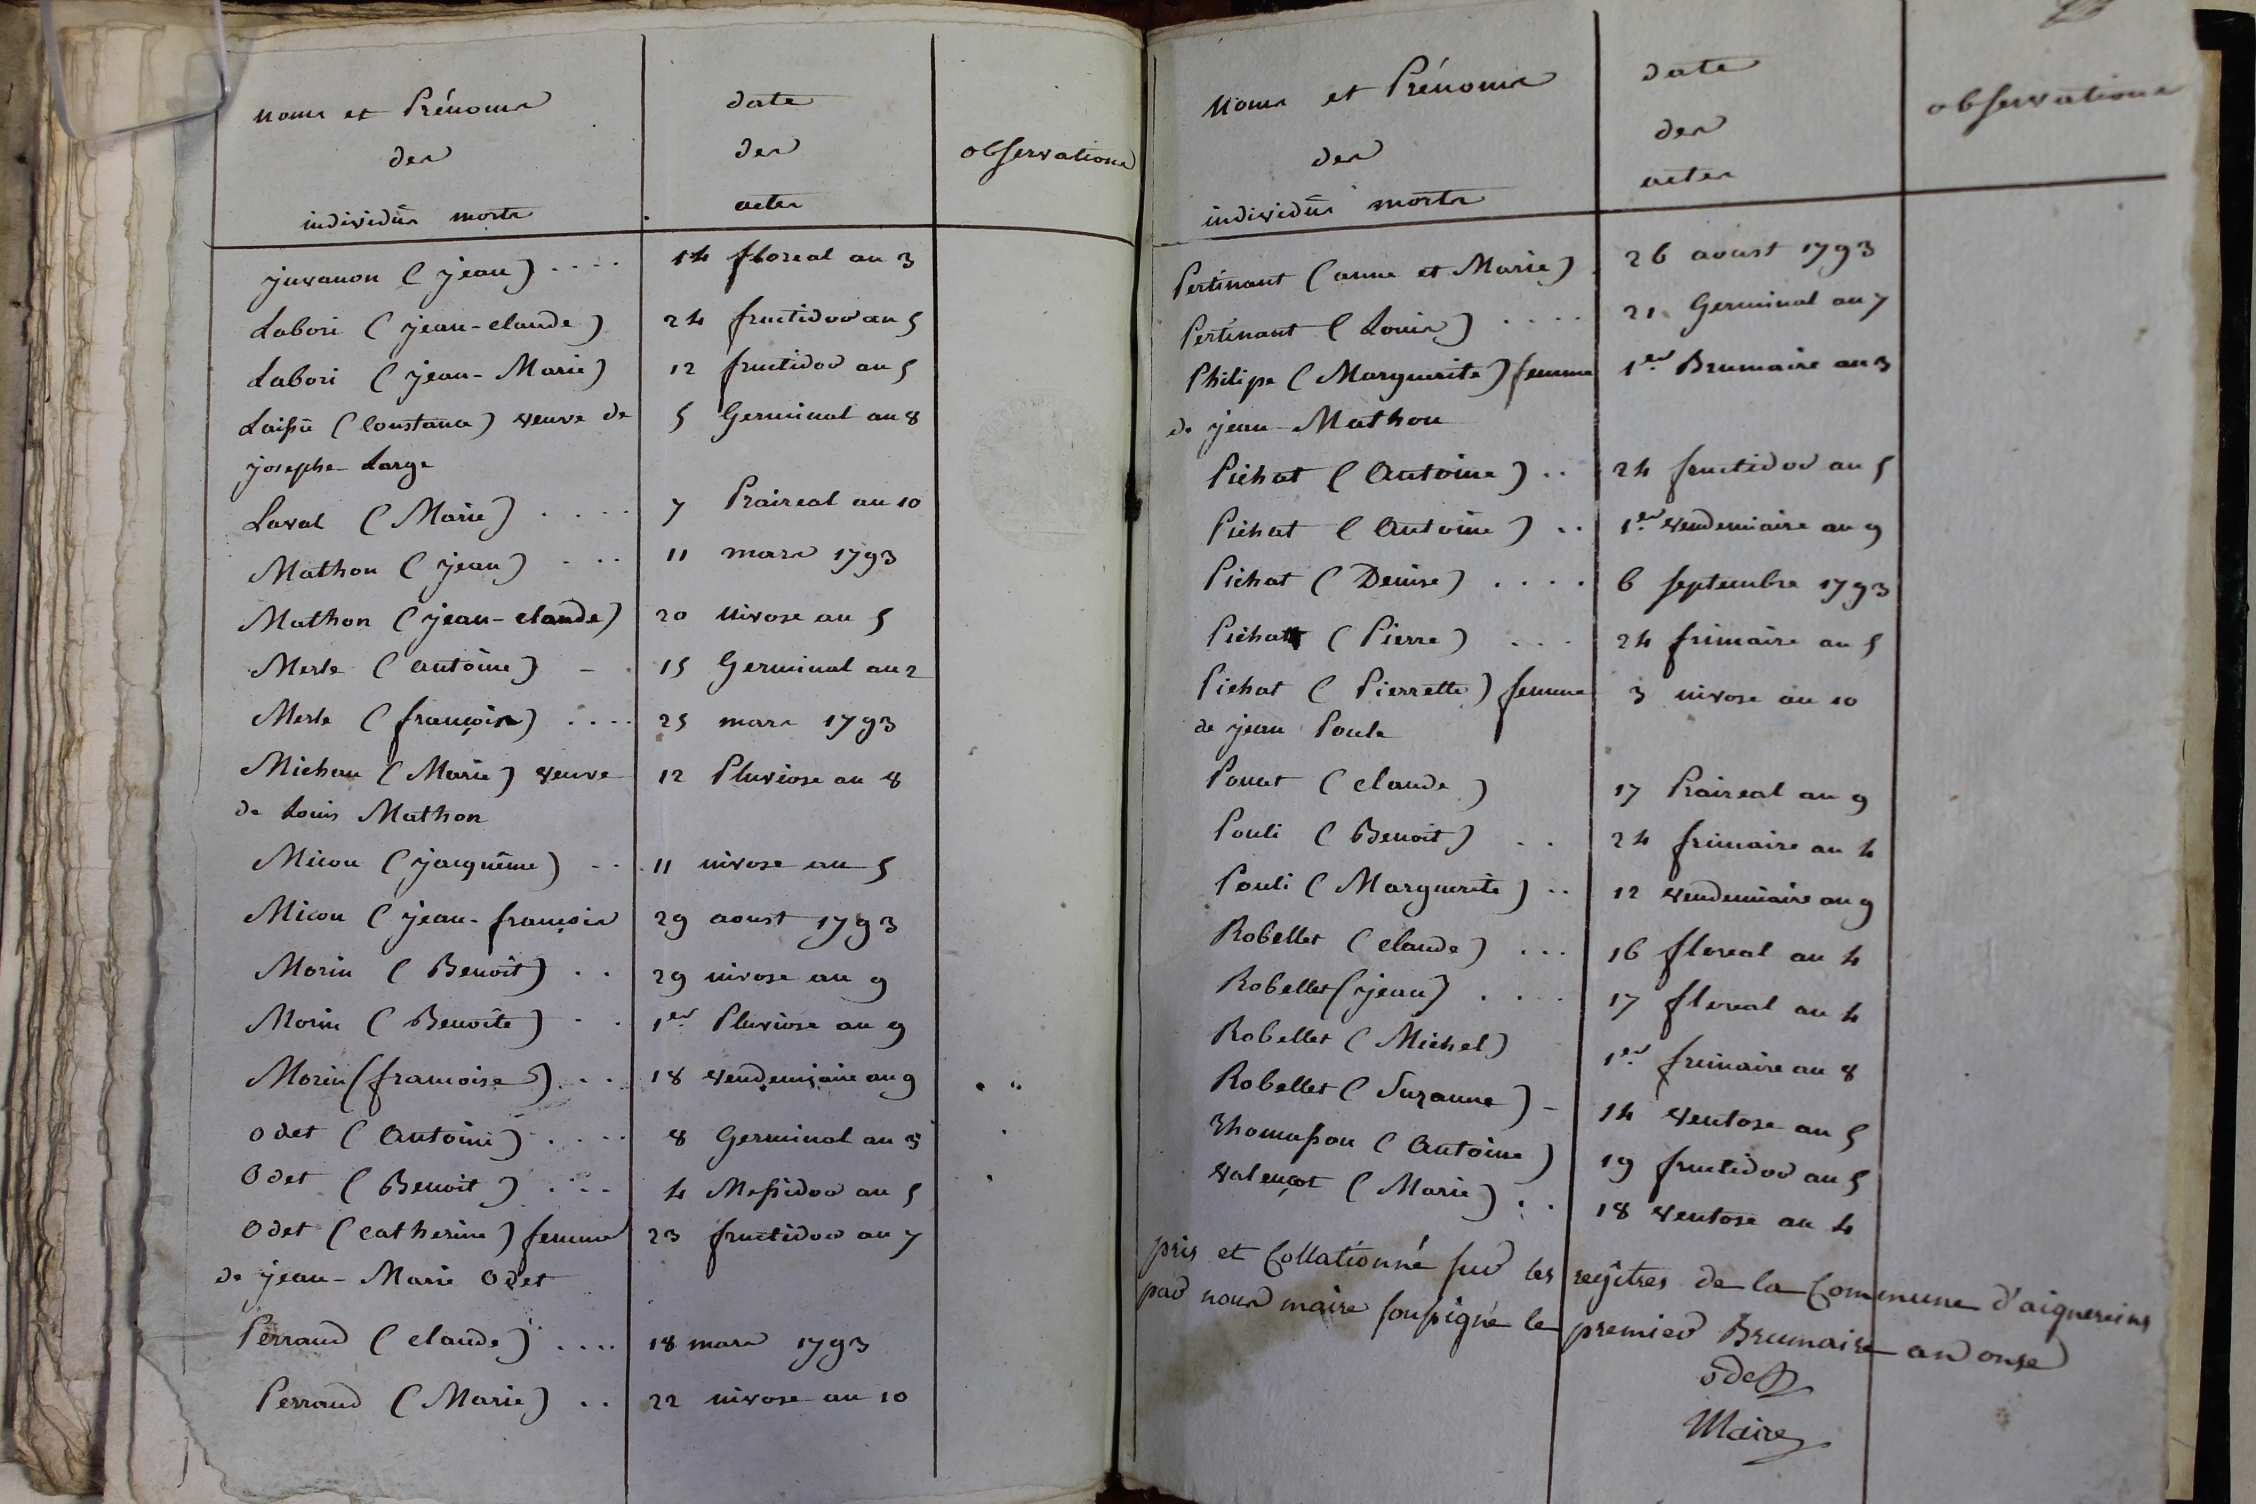 Noms et Prénoms
des
individüs morts
date
des
actes
observations
juvanon (jean) .... 14 floreal an 3
Labori (jean-claude) 24 fructidor an 5
Labori (jean-Marie) 12 fructidor an 5
Laissü (Constance) veuve de 5 Germinal an 8
josephe Large
Laval (Marie) .... 7 Praireal an 10
Mathon (jean) ... 11 mars 1793
Mathon (jean-claude) 20 nivose an 5
Merle (antoine) - 15 Germinal an 2
Merle (françois) .... 25 mars 1793
Michau (Marie) veuve 12 Pluviose an 8
de Louis Mathon
Micou (jacquême) ... 11 nivose an 5
Micou (jean-françois 29 aoust 1793
Morin (Benoit) .. 29 nivose an 9
Morin (Benoite) .. 1er Pluviose an 9
Morin (francoise) ... 18 vendemiaire an 9
Odet (Antoine) .... 8 Germinal an 3
Odet (Benoit) .... 4 Messidor an 5
Odet (catherine) femme 23 fructidor an 7
de jean-Marie Odet
Perraud (claude) .... 18 mars 1793
Perraud (Marie) .. 22 nivose an 10
Noms et Prénoms
des
individüs morts
date
des
actes
observations
Pertinant (anne et Marie) 26 aoust 1793
Pertinant (Louis) .... 21 Germinal an 7
Philipe (Marguerite) femme 1er Brumaire an 3
de jean Mathon
Pichat (Antoine) .. 24 fructidor an 5
Pichat (Antoine) .. 1er vendemiaire an 9
Pichat (Denise) .... 6 septembre 1793
Pichat (Pierre) ... 24 frimaire an 5
Pichat (Pierrette) femme 3 nivose an 10
de jean Poule
Ponat (claude) 17 Praireal an 9
Pouli (Benoit) .. 24 frimaire an 4
Pouli (Marguerite) .. 12 vendemiaire an 9
Robellet (claude) ... 16 floreal an 4
Robellet (jean) .... 17 floreal an 4
Robellet (Michel) 1er frimaire an 8
Robellet (Suzanne) - 14 ventose an 5
Thomasson (Antoine) 19 fructidor an 5
valençot (Marie) .. 18 ventose an 4
pris et Collationné sur les regîtres de la Commune d'aiguereins
par nous maire soussigné le premier Brumaire an onze
Odet
Maire